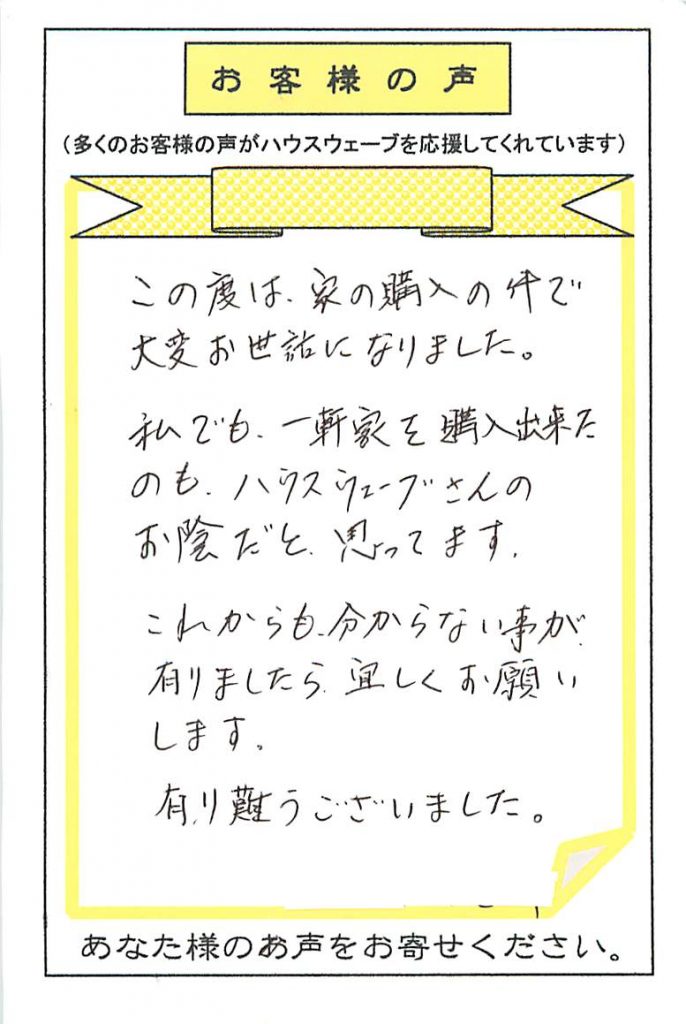 お客様の声
（多くのお客様の声がハウスウェーブを応援してくれています）
この度は、家の購入の件で
大変お世話になりました。
私でも、一軒家を購入出来た
のも、ハウスウェーブさんの
お陰だと、思ってます。
これからも、分からない事が
有りましたら、宜しくお願い
します。
有り難うございました。
あなた様のお声をお寄せください。